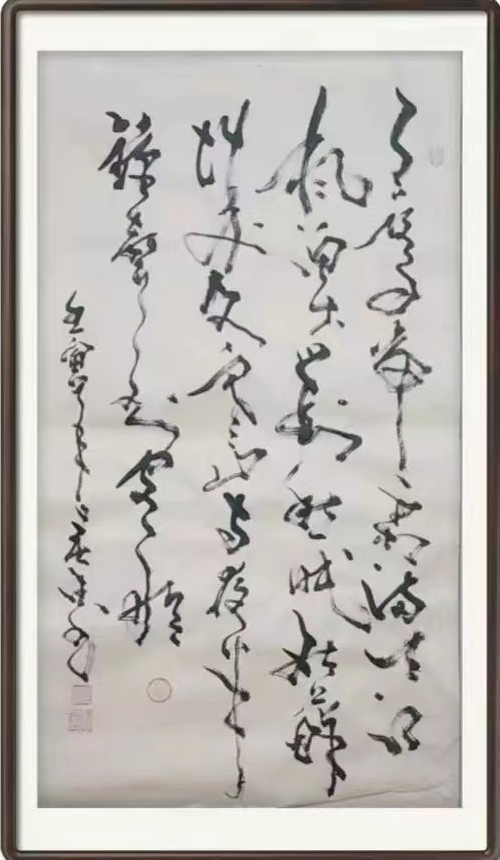 月落乌啼霜满天江
枫渔火对愁眠姑苏
城外寒山寺夜半
钟声到客船
壬寅